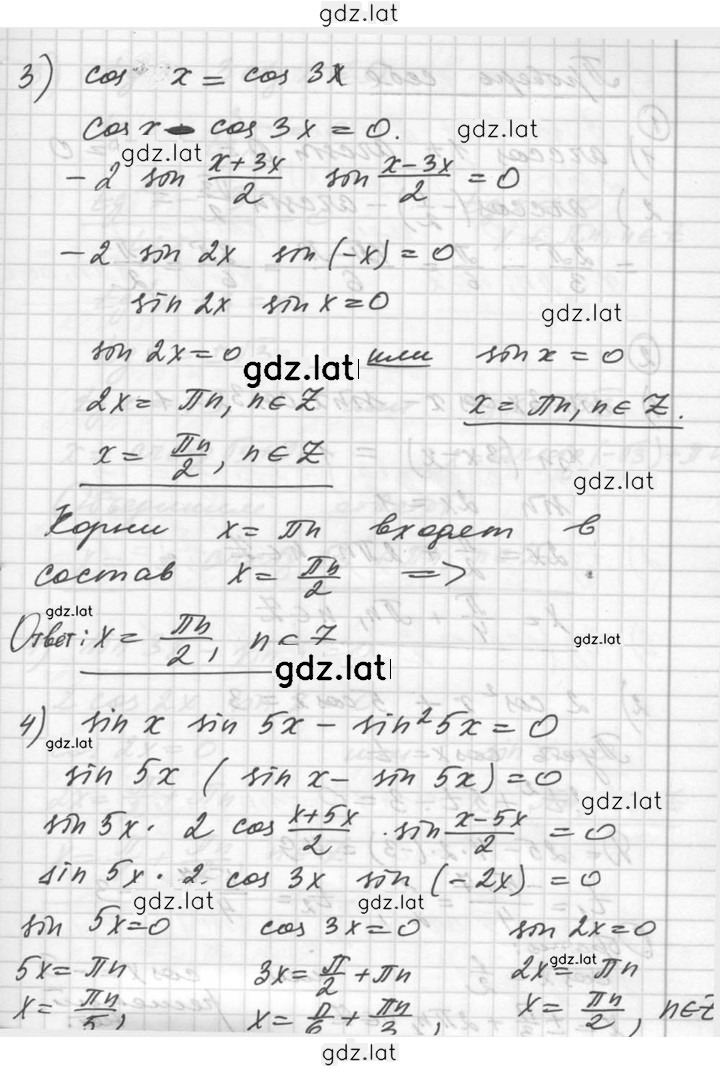 gdz.lat
3) cos x = cos 3x
cos x - cos 3x = 0.
gdz.lat
gdz.lat
-2 sin (x+3x)/2 sin (x-3x)/2 = 0
-2 sin 2x sin (-x) = 0
sin 2x sin x = 0
gdz.lat
sin 2x = 0 или sin x = 0
gdz.lat
2x = πn, n ∈ Z x = πn, n ∈ Z.
x = πn/2, n ∈ Z
gdz.lat
Корни x = πn входят в
состав x = πn/2 =>
gdz.lat
Ответ: x = πn/2, n ∈ Z
gdz.lat
gdz.lat
4) sin x sin 5x - sin² 5x = 0
gdz.lat
sin 5x (sin x - sin 5x) = 0
gdz.lat
sin 5x · 2 cos (x+5x)/2 · sin (x-5x)/2 = 0
sin 5x · 2 · cos 3x sin (-2x) = 0
gdz.lat
gdz.lat
sin 5x = 0 cos 3x = 0 sin 2x = 0
gdz.lat
5x = πn 3x = π/2 + πn 2x = πn
x = πn/5, x = π/6 + πn/3, x = πn/2, n ∈ Z
gdz.lat